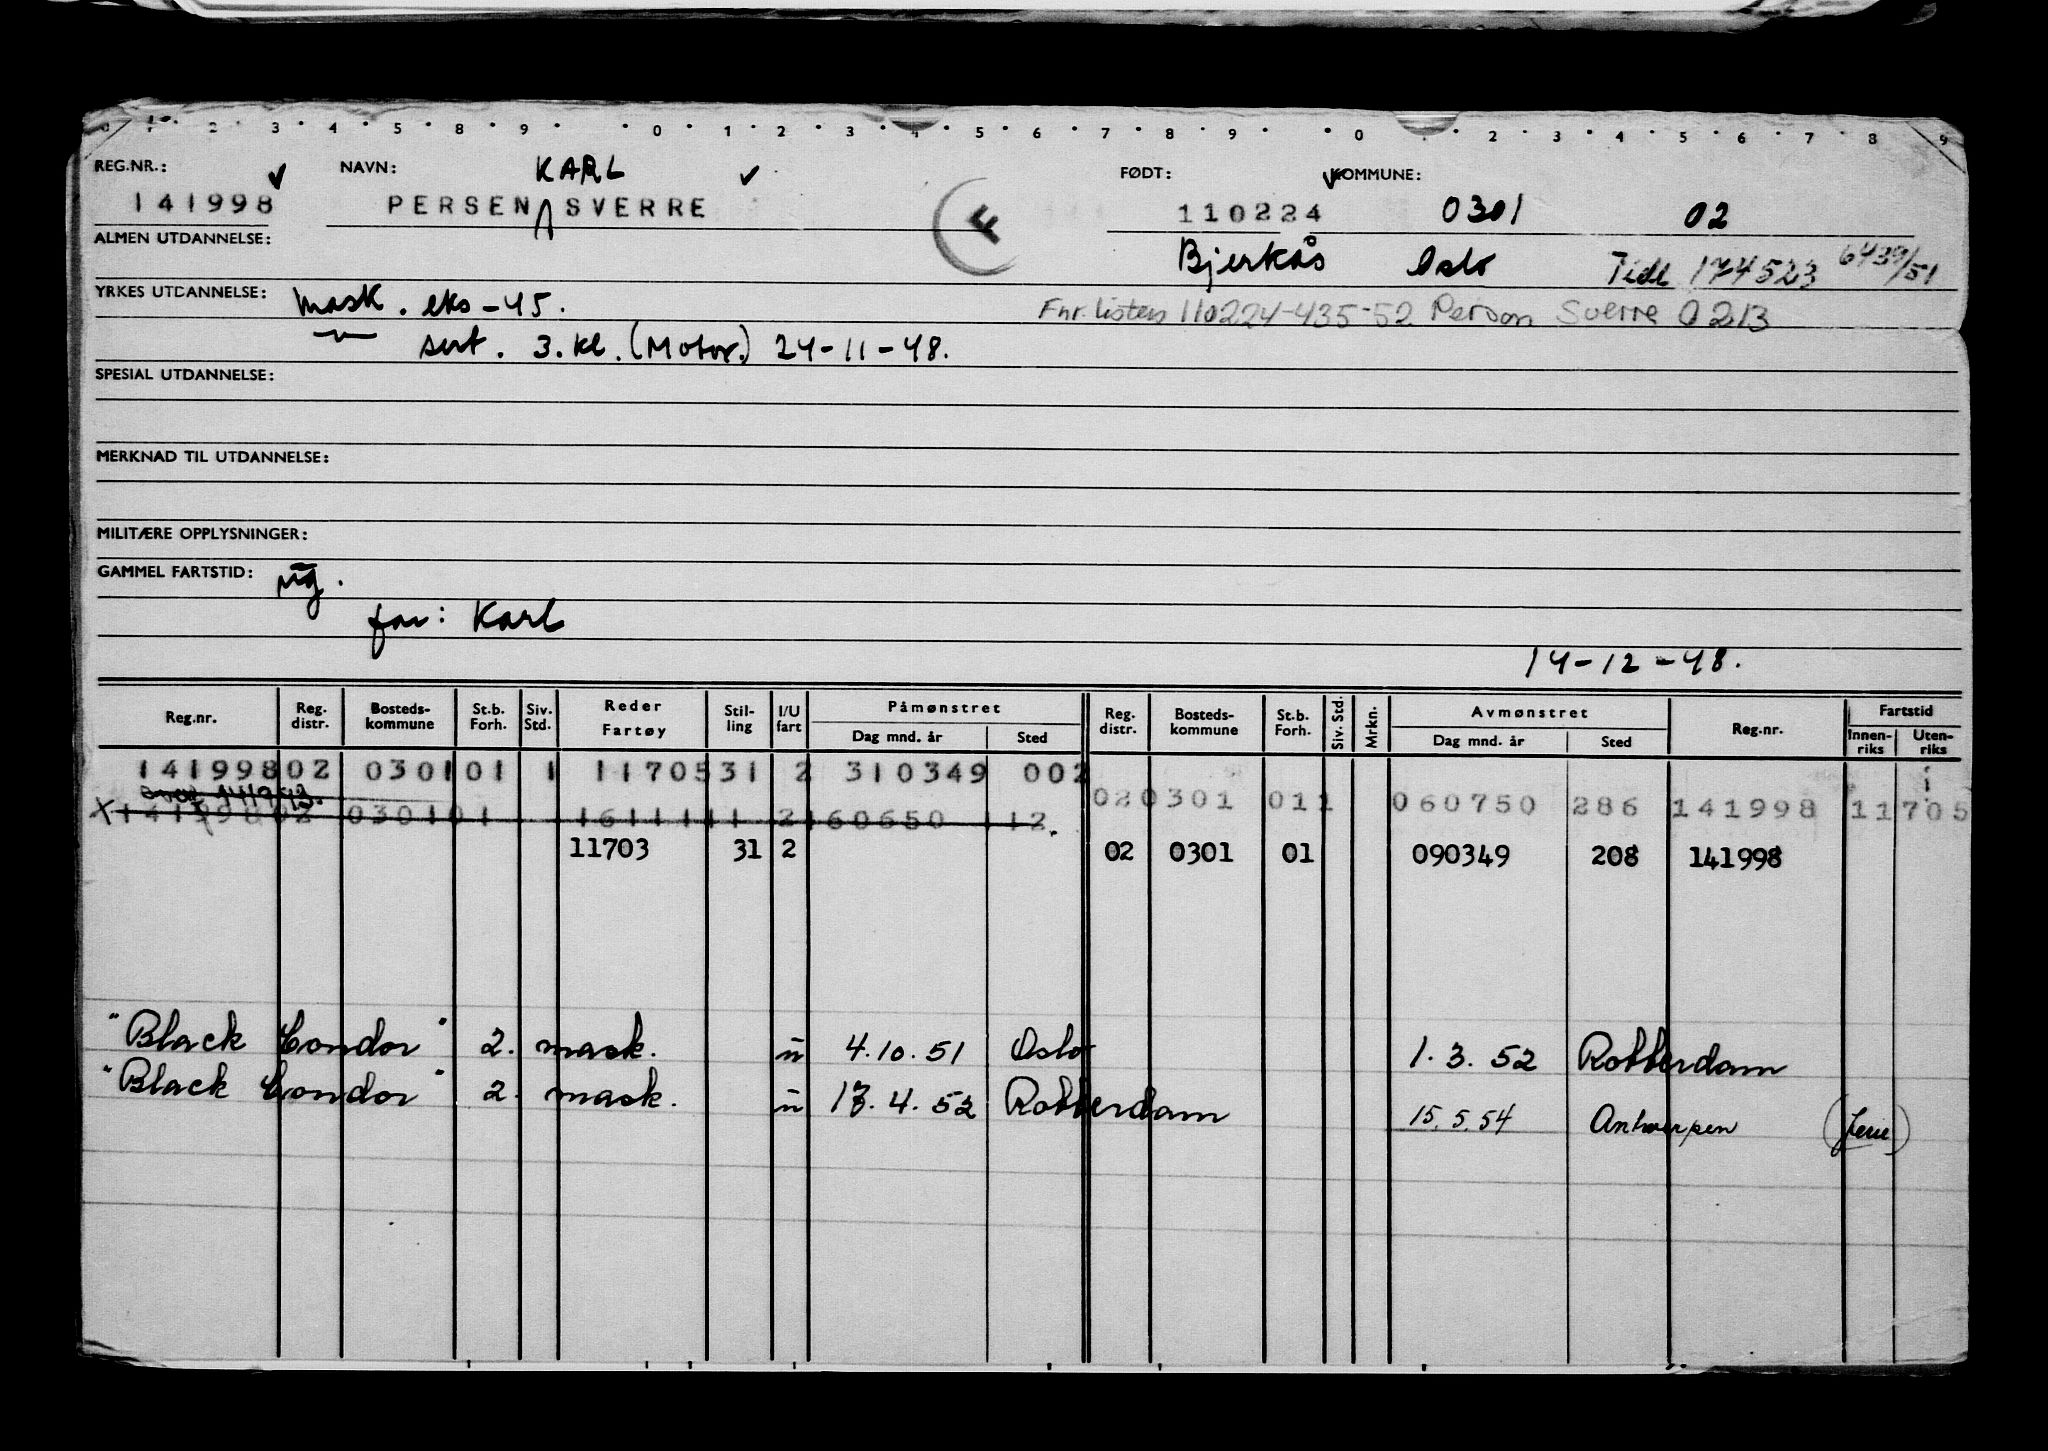 0 1 2 3 4 5 8 9 0 1 2 3 4 5 6 7 8 9 0 2 3 4 5 6 7 8 9
REG.NR.: NAVN: KARL FØDT: KOMMUNE:
141998 PERSEN SVERRE F 110224 0301 02
ALMEN UTDANNELSE: Bjerkås Oslo Tidl 174523 6439/51
YRKES UTDANNELSE: Mask. eks-45. Fnr.listen 110224-435-52 Person Sverre 0213
sert. 3. kl. (Motor.) 24-11-48.
SPESIAL UTDANNELSE:
MERKNAD TIL UTDANNELSE:
MILITÆRE OPPLYSNINGER:
GAMMEL FARTSTID: ug.
far: Karl
14-12-48.
Reg.nr. Reg. distr. Bosteds-kommune St.b. Forh. Siv. Std. Reder Fartøy Stil-ling I/U fart Påmønstret Dag mnd. år Sted Reg. distr. Bosteds-kommune St.b. Forh. Siv. Std. Mrkn. Avmønstret Dag mnd. år Sted Reg.nr. Fartstid Innen-riks Uten-riks
141998 02 0301 01 1 11705 31 2 310349 002
020301 011 060750 286 141998 11705
X 141998 02 0301 01 1611141 2 160650 112.
11703 31 2 02 0301 01 090349 208 141998
"Black Condor" 2. mask. u 4.10.51 Oslo 1.3.52 Rotterdam
"Black Condor" 2. mask. u 17.4.52 Rotterdam 15.5.54 Antwerpen (ferie)